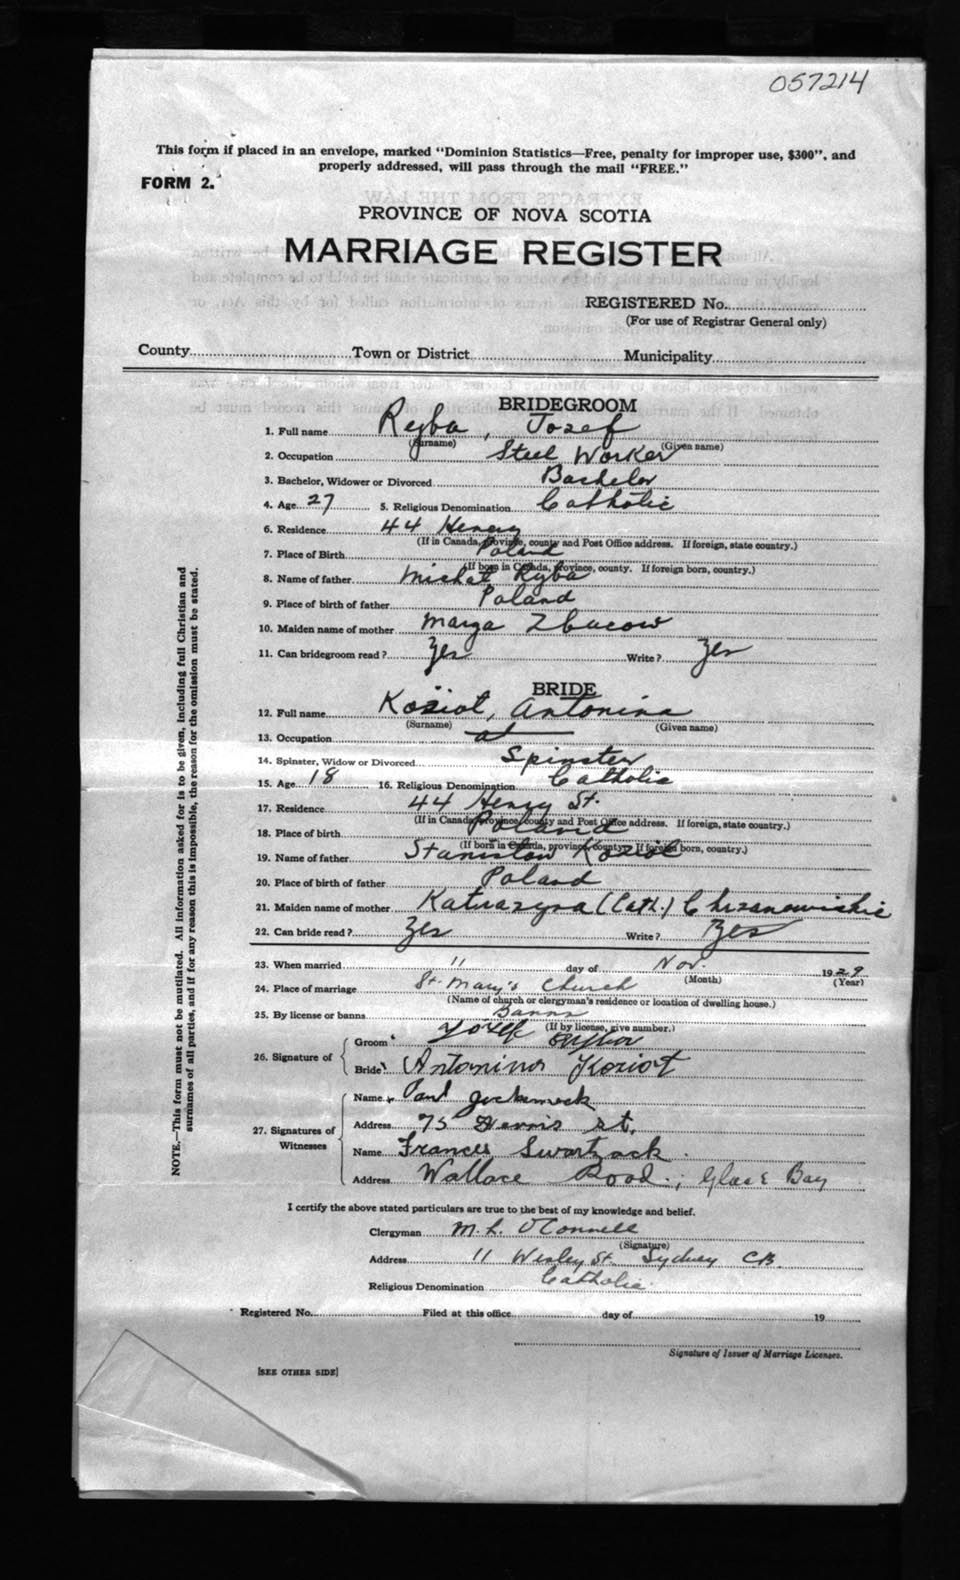 057214
This form if placed in an envelope, marked "Dominion Statistics—Free, penalty for improper use, $300", and
properly addressed, will pass through the mail "FREE."
FORM 2.
PROVINCE OF NOVA SCOTIA
MARRIAGE REGISTER
REGISTERED No.
(For use of Registrar General only)
County Town or District Municipality
BRIDEGROOM
1. Full name Ryba, Jozef
(Surname) (Given name)
2. Occupation Steel Worker
3. Bachelor, Widower or Divorced Bachelor
4. Age 27 5. Religious Denomination Catholic
6. Residence 44 Henry
(If in Canada, province, county and Post Office address. If foreign, state country.)
7. Place of Birth Poland
(If born in Canada, province, county. If foreign born, country.)
8. Name of father Michat Ryba
9. Place of birth of father Poland
10. Maiden name of mother Marya
11. Can bridegroom read? Yes Write? Yes
BRIDE
12. Full name Koziot, Antonina
(Surname) (Given name)
13. Occupation at
14. Spinster, Widow or Divorced Spinster
15. Age 18 16. Religious Denomination Catholic
17. Residence 44 Henry St.
(If in Canada, province, county and Post Office address. If foreign, state country.)
18. Place of birth Poland
(If born in Canada, province, county. If foreign born, country.)
19. Name of father Stanistaw Koziot
20. Place of birth of father Poland
21. Maiden name of mother (Cath.)
22. Can bride read? Yes Write? Yes
23. When married 11 day of Nov. 1929
(Month) (Year)
24. Place of marriage St. Mary's Church
(Name of church or clergyman's residence or location of dwelling house.)
25. By license or banns Banns
(If by license, give number.)
26. Signature of
Groom Jozef
Bride Antonina Koziot
27. Signatures of Witnesses
Name Paul
Address 75 St.
Name Frances Swartzack
Address Wallace Road, Glace Bay
I certify the above stated particulars are true to the best of my knowledge and belief.
Clergyman M. L. O'Connell
(Signature)
Address 11 Wesley St. Sydney C.B.
Religious Denomination Catholic
Registered No. Filed at this office day of 19
Signature of Issuer of Marriage Licenses.
[SEE OTHER SIDE]
NOTE.—This form must not be mutilated. All information asked for is to be given, including full Christian and
surnames of all parties, and if for any reason this is impossible, the reason for the omission must be stated.